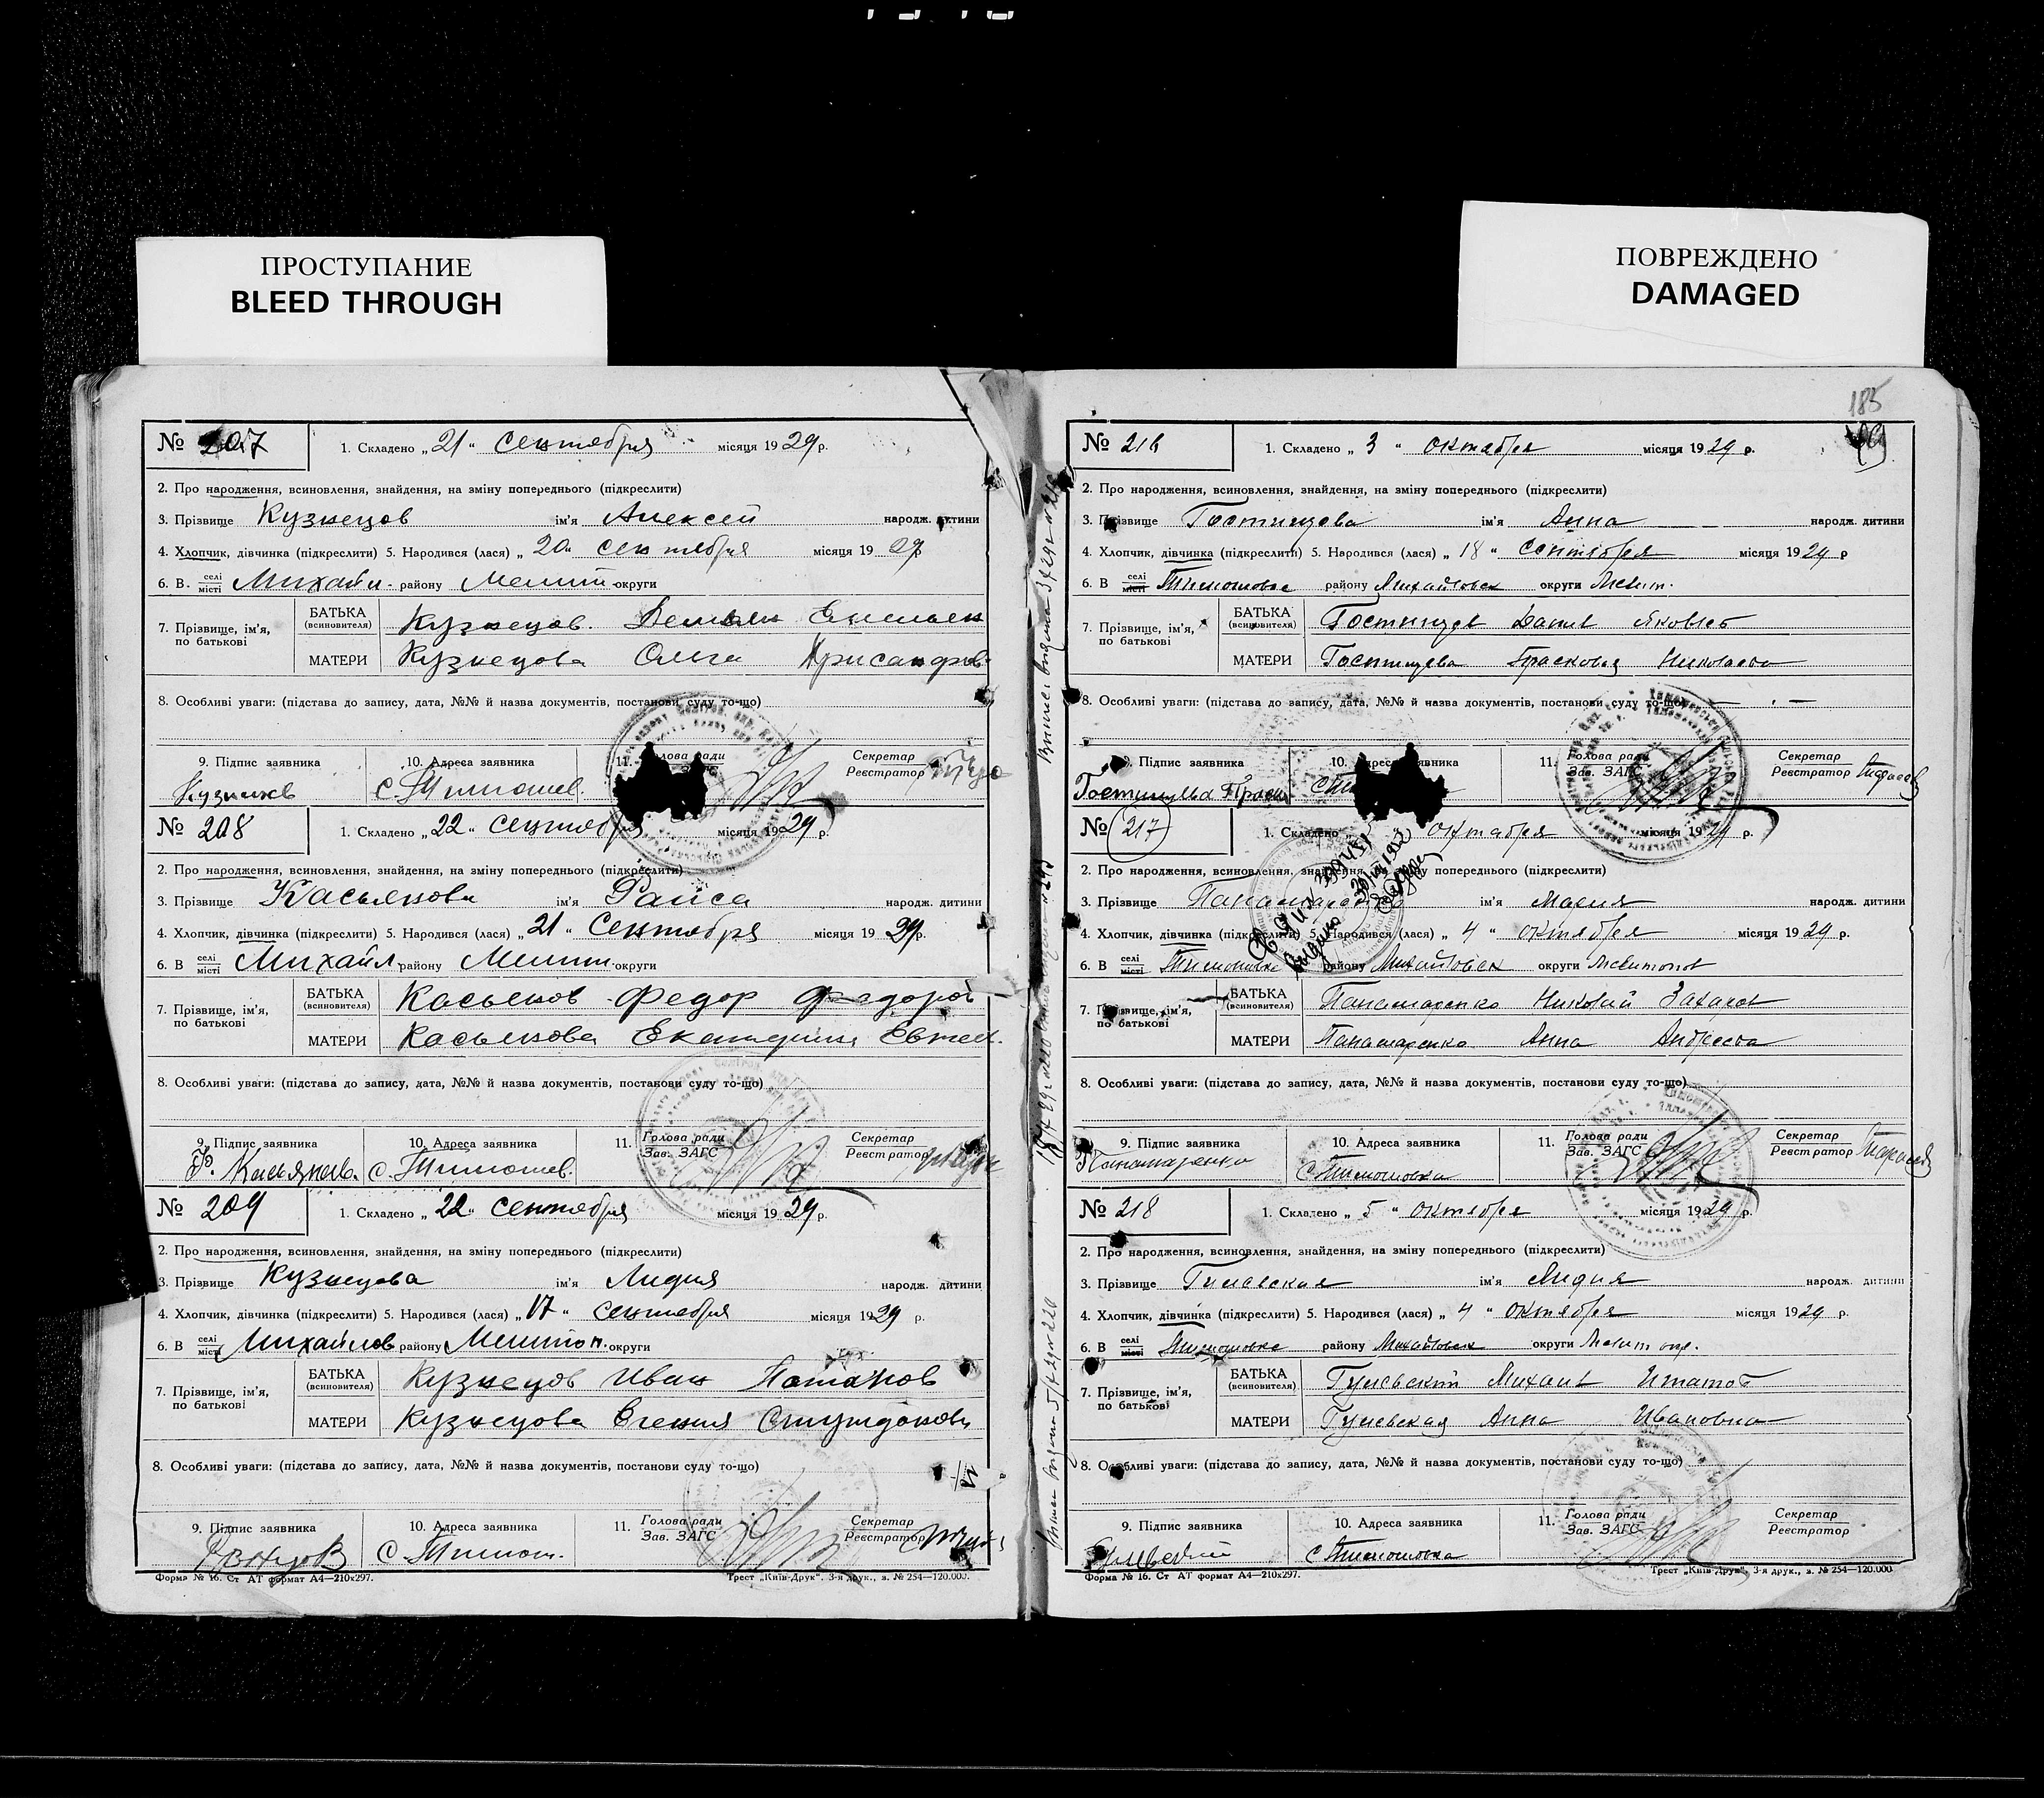 ПРОСТУПАНИЕ
BLEED THROUGH
ПОВРЕЖДЕНО
DAMAGED
№ 207 1. Складено „21“ сентября місяця 1929 р.
2. Про народження, всиновлення, знайдення, на зміну попереднього (підкреслити)
3. Прізвище Кузнецов ім'я Алексей народж. дитини
4. Хлопчик, дівчинка (підкреслити) 5. Народився (лася) „20“ сентября місяця 1929
6. В. селі місті Михайл. району Мелит. округи
7. Прізвище, ім'я, по батькові БАТЬКА (всиновителя) Кузнецов Демьян
МАТЕРИ Кузнецова Ольга
8. Особливі уваги: (підстава до запису, дата, №№ й назва документів, постанови суду то-що)
9. Підпис заявника 10. Адреса заявника 11. Голова ради Секретар Реєстратор
Кузнецов с. Тимошев.
№ 208 1. Складено „22“ сентября місяця 1929 р.
2. Про народження, всиновлення, знайдення, на зміну попереднього (підкреслити)
3. Прізвище Касьянова ім'я Раиса народж. дитини
4. Хлопчик, дівчинка (підкреслити) 5. Народився (лася) „21“ Сентября місяця 1929 р.
6. В селі місті Михайл. району Мелит. округи
7. Прізвище, ім'я, по батькові БАТЬКА (всиновителя) Касьянов Федор Федоров
МАТЕРИ Касьянова Екатерина
8. Особливі уваги: (підстава до запису, дата, №№ й назва документів, постанови суду то-що)
9. Підпис заявника 10. Адреса заявника 11. Голова ради Зав. ЗАГС Секретар Реєстратор
Ф. Касьянов. с. Тимошев.
№ 209 1. Складено „22“ сентября місяця 1929 р.
2. Про народження, всиновлення, знайдення, на зміну попереднього (підкреслити)
3. Прізвище Кузнецова ім'я Лидия народж. дитини
4. Хлопчик, дівчинка (підкреслити) 5. Народився (лася) „17“ сентября місяця 1929 р.
6. В селі місті Михайлов району Мелитоп. округи
7. Прізвище, ім'я, по батькові БАТЬКА (всиновителя) Кузнецов Иван
МАТЕРИ Кузнецова
8. Особливі уваги: (підстава до запису, дата, №№ й назва документів, постанови суду то-що)
9. Підпис заявника 10. Адреса заявника 11. Голова ради Зав. ЗАГС Секретар Реєстратор
с. Тимош.
Форма № 16. Ст АТ формат А4—210х297. Трест „Київ-Друк“. 3-я друк., з. № 254—120.000.
185
№ 216 1. Складено „3“ октября місяця 1929 р.
2. Про народження, всиновлення, знайдення, на зміну попереднього (підкреслити)
3. Прізвище Гостищева ім'я Анна народж. дитини
4. Хлопчик, дівчинка (підкреслити) 5. Народився (лася) „18“ сентября місяця 1929 р
6. В селі місті Тимошовке району Михайловск округи Мелит.
7. Прізвище, ім'я, по батькові БАТЬКА (всиновителя) Гостищев Данил Яковлев
МАТЕРИ Гостищева Прасковья Николаевна
8. Особливі уваги: (підстава до запису, дата, №№ й назва документів, постанови суду то-що)
9. Підпис заявника 10. Адреса заявника 11. Голова ради Зав. ЗАГС Секретар Реєстратор
Гостищева
№ 217 1. Складено октября місяця 1929 р.
2. Про народження, всиновлення, знайдення, на зміну попереднього (підкреслити)
3. Прізвище Панамаренко ім'я Мария народж. дитини
4. Хлопчик, дівчинка (підкреслити) 5. Народився (лася) „4“ октября місяця 1929 р.
6. В селі місті Тимошовке району Михайловск округи Мелитопол
7. Прізвище, ім'я, по батькові БАТЬКА (всиновителя) Панамаренко Николай Захаров
МАТЕРИ Панамаренко Анна Андреевна
8. Особливі уваги: (підстава до запису, дата, №№ й назва документів, постанови суду то-що)
9. Підпис заявника 10. Адреса заявника 11. Голова ради Зав. ЗАГС Секретар Реєстратор
Панамаренко с Тимошовка
№ 218 1. Складено „5“ октября місяця 1929 р.
2. Про народження, всиновлення, знайдення, на зміну попереднього (підкреслити)
3. Прізвище ім'я Лидия народж. дитини
4. Хлопчик, дівчинка (підкреслити) 5. Народився (лася) „4“ октября місяця 1929 р.
6. В селі місті Тимошовке району Михайловск округи Мелит окр.
7. Прізвище, ім'я, по батькові БАТЬКА (всиновителя) Михаил
МАТЕРИ Анна Ивановна
8. Особливі уваги: (підстава до запису, дата, №№ й назва документів, постанови суду то-що)
9. Підпис заявника 10. Адреса заявника 11. Голова ради Зав. ЗАГС Секретар Реєстратор
с Тимошовка
Форма № 16. Ст АТ формат А4—210х297. Трест „Київ-Друк“, 3-я друк., з. № 254—120.000